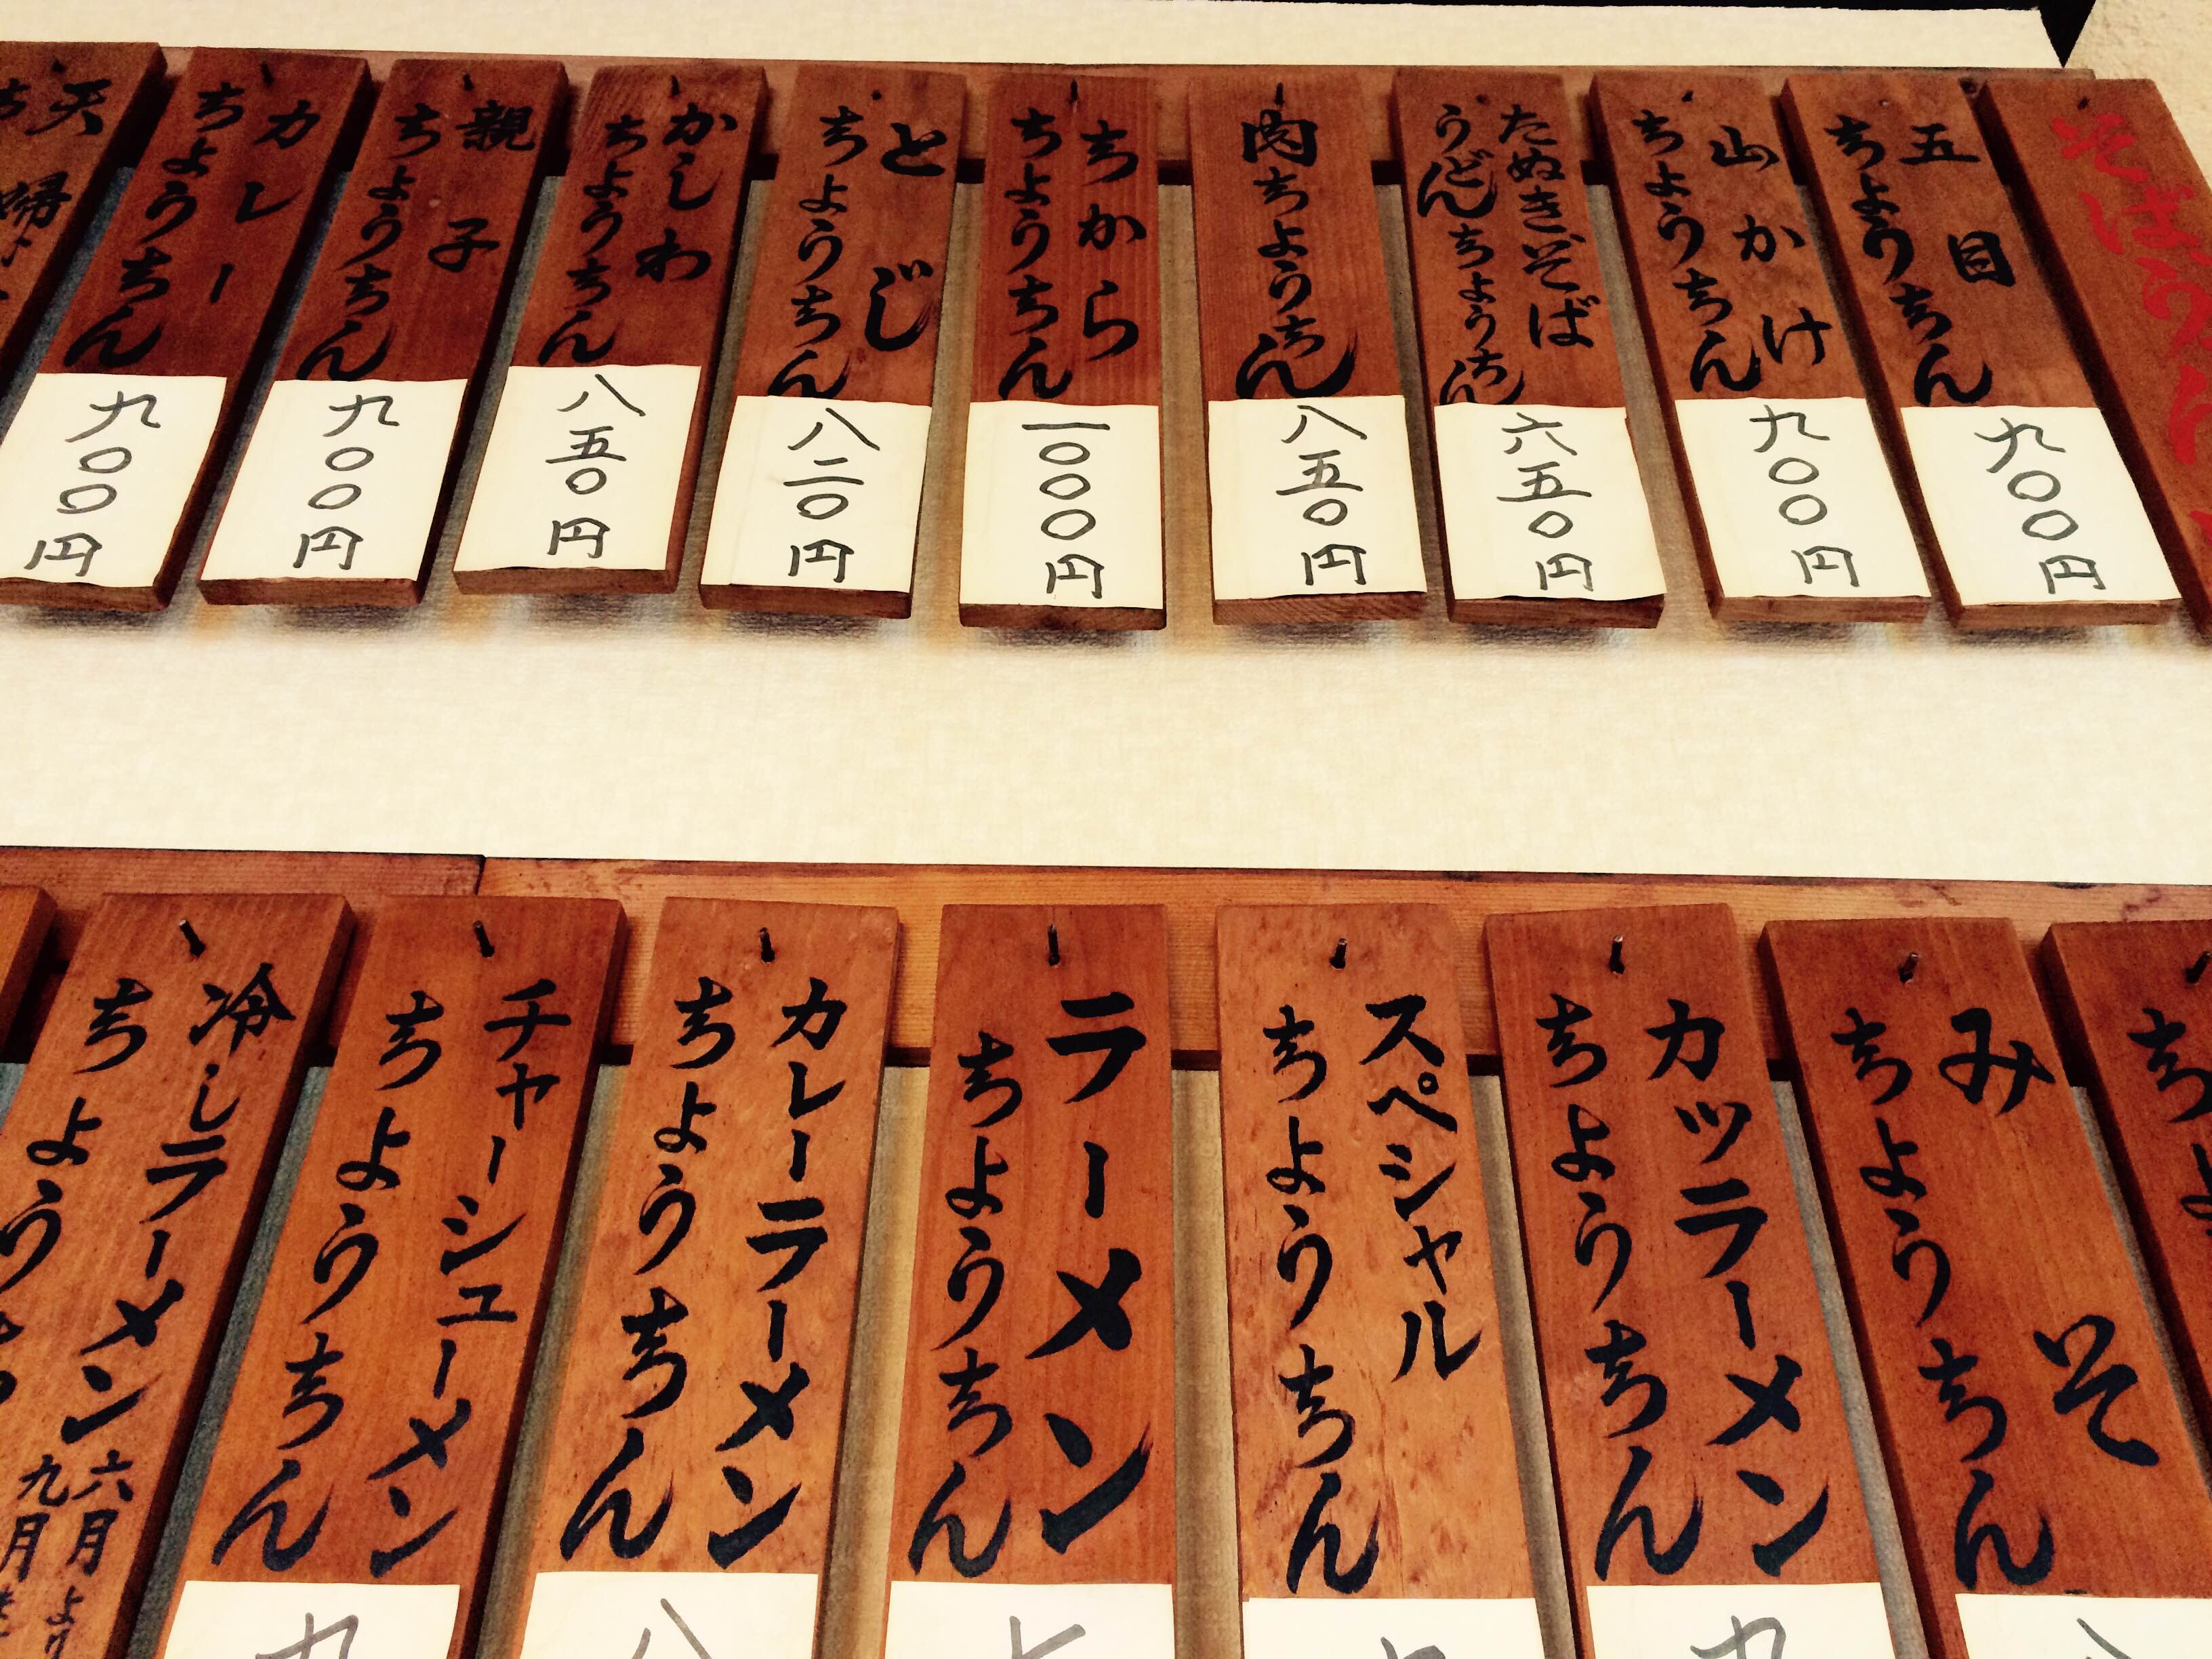 そばうどん
五目
ちょうちん
九〇〇円
山かけ
ちょうちん
九〇〇円
たぬきそば
うどんちょうちん
六五〇円
肉ちょうちん
八五〇円
ちから
ちょうちん
一〇〇〇円
とじ
ちょうちん
八二〇円
かしわ
ちょうちん
八五〇円
親子
ちょうちん
九〇〇円
カレー
ちょうちん
九〇〇円
天婦
ち
ち
みそ
ちょうちん
八
カツラーメン
ちょうちん
九
スペシャル
ちょうちん
ラーメン
ちょうちん
七
カレーラーメン
ちょうちん
八
チャーシューメン
ちょうちん
九
冷しラーメン
ちょうち
六月より
九月ま